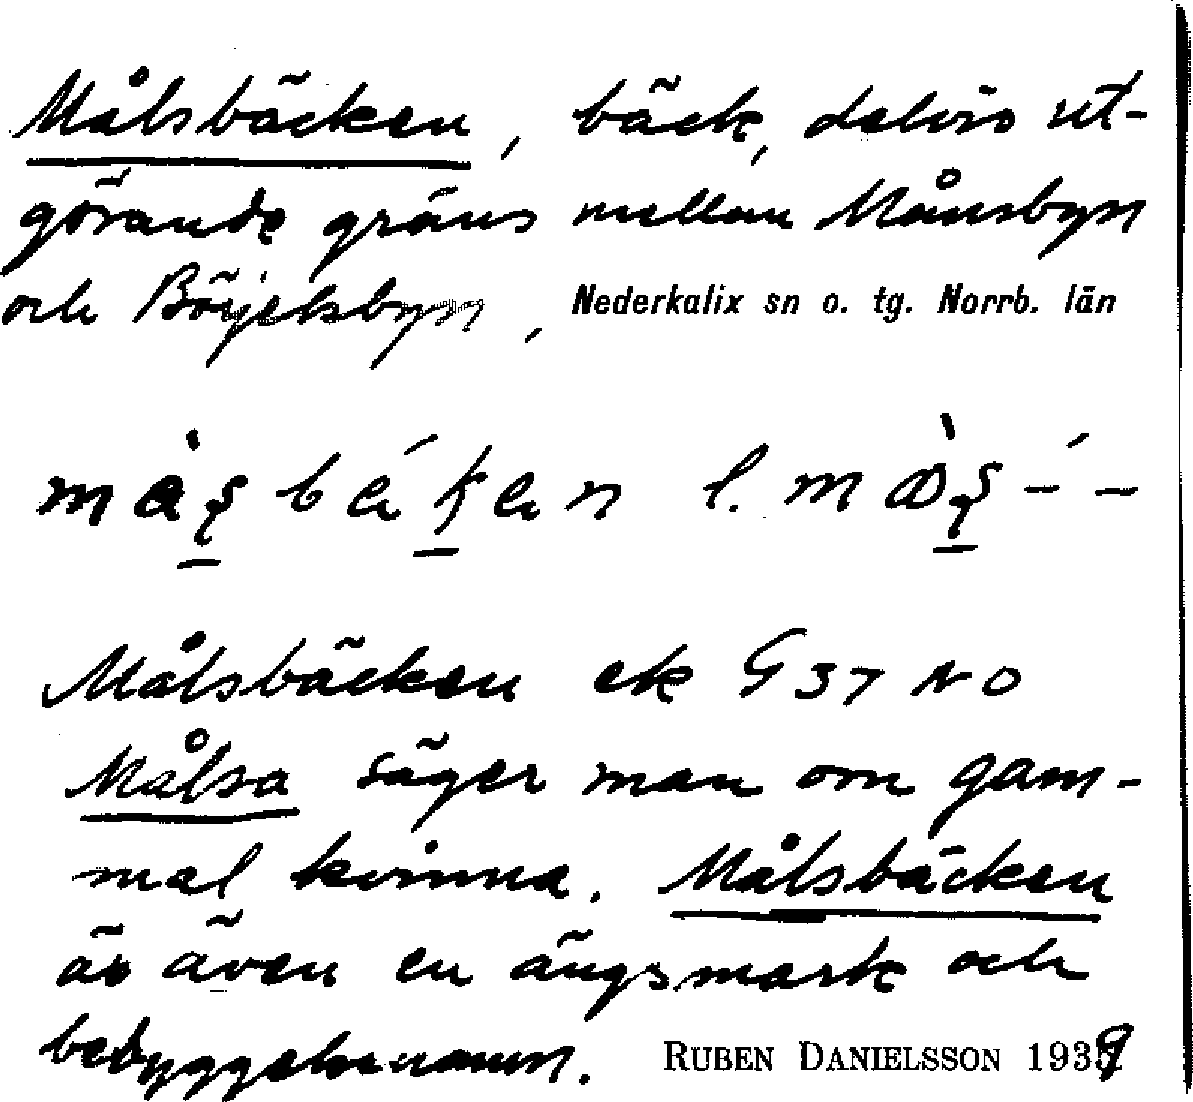 Målsbäcken, bäck, delvis ut-
görande gräns mellan Månsbyn
och Börjelsbyn, Nederkalix sn o. tg. Norrb. län
l.
Målsbäcken ek G 37 NO
Målsa säger man om gam-
mal kvinna. Målsbäcken
är även en ängsmark och
bebyggelsenamn. RUBEN DANIELSSON 1939